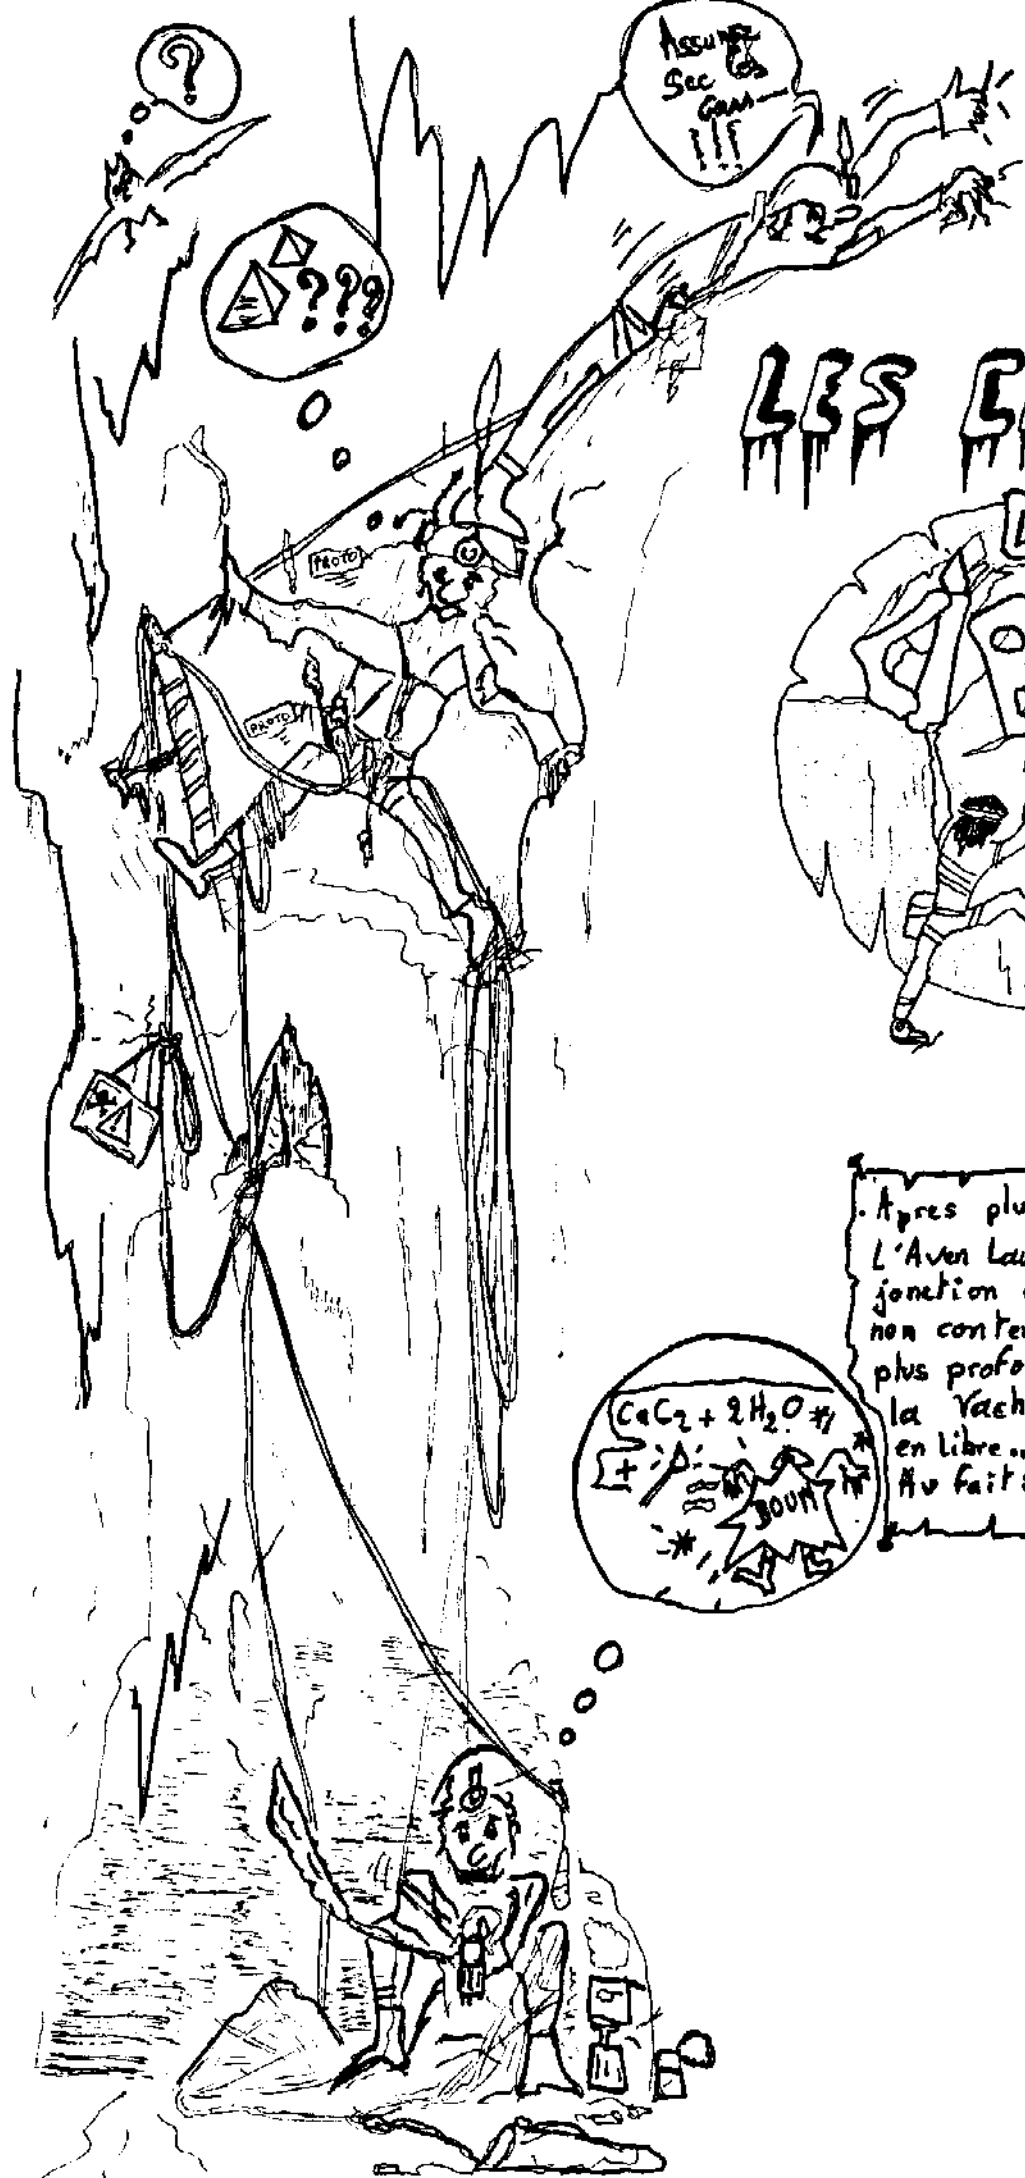 ?
Assurez
Sec les
Gars
!!!
???
LES C
PROTO
PROTO
. Apres plu
L'Aven Lau
jonction
non conte
plus profo
la Vach
en libre...
Au fait
CaC2 + 2H2O
+
=
BOUM